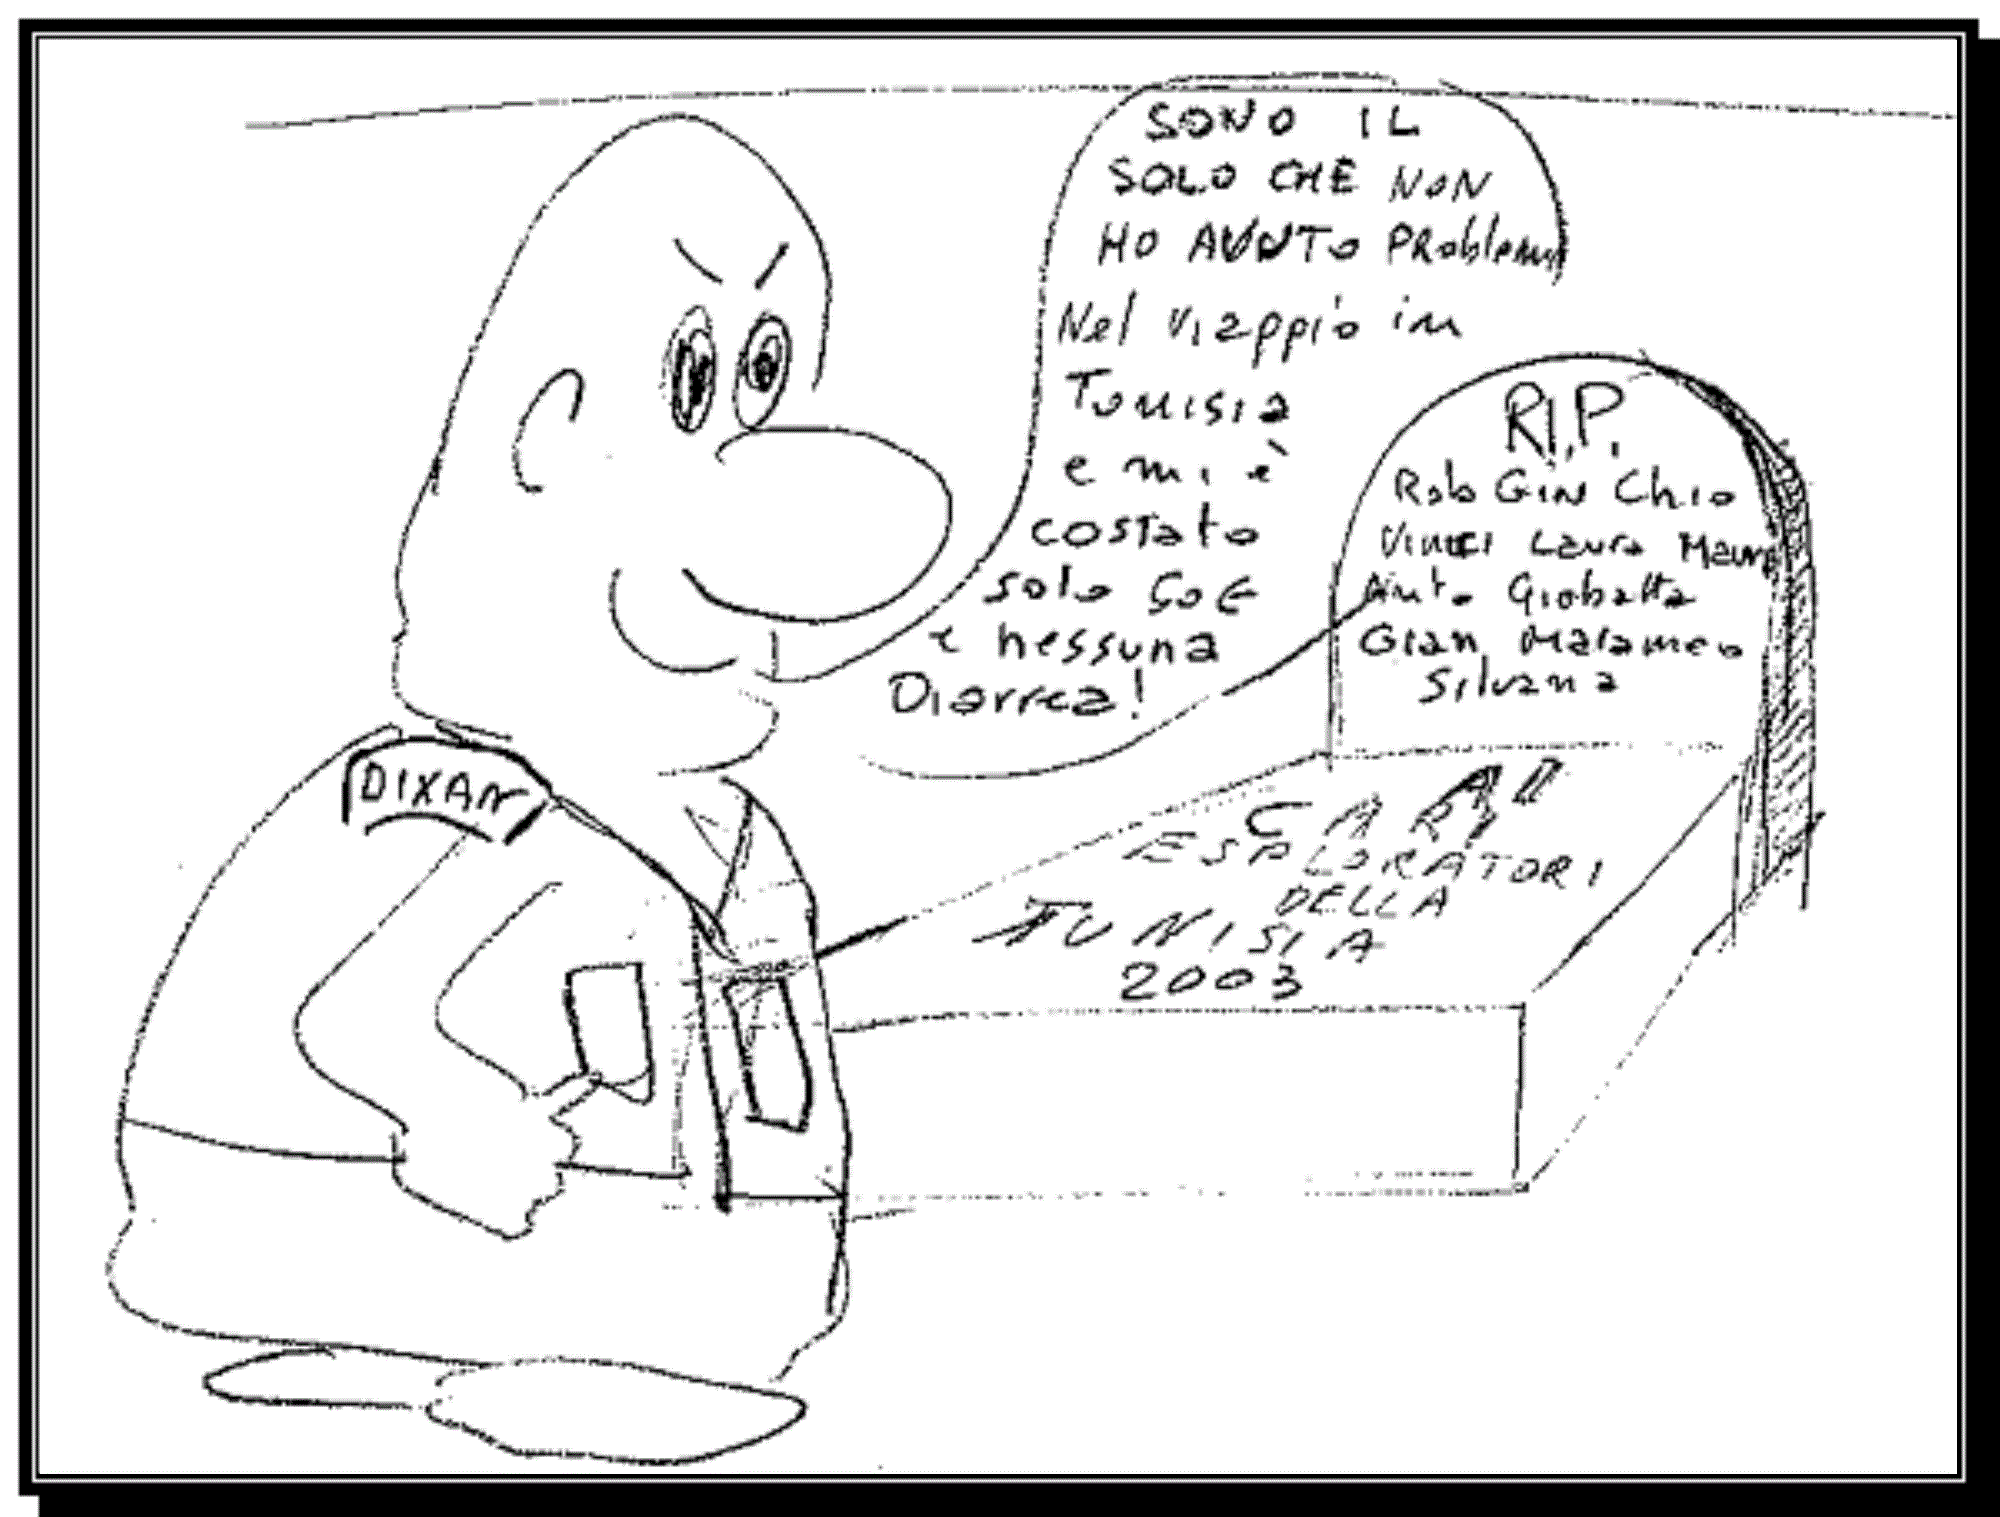 SONO IL
SOLO CHE NON
HO AVUTO PRoblemi
Nel viaggio in
Tunisia
e mi è
costato
solo 50 €
e nessuna
Diarrea!
R.I.P.
Rob Gin Chio
Vinici Laura Mauro
Giobatta
Gian Marameo
Silvana
DIXAN
CARI
ESPLORATORI
DELLA
TUNISIA
2003